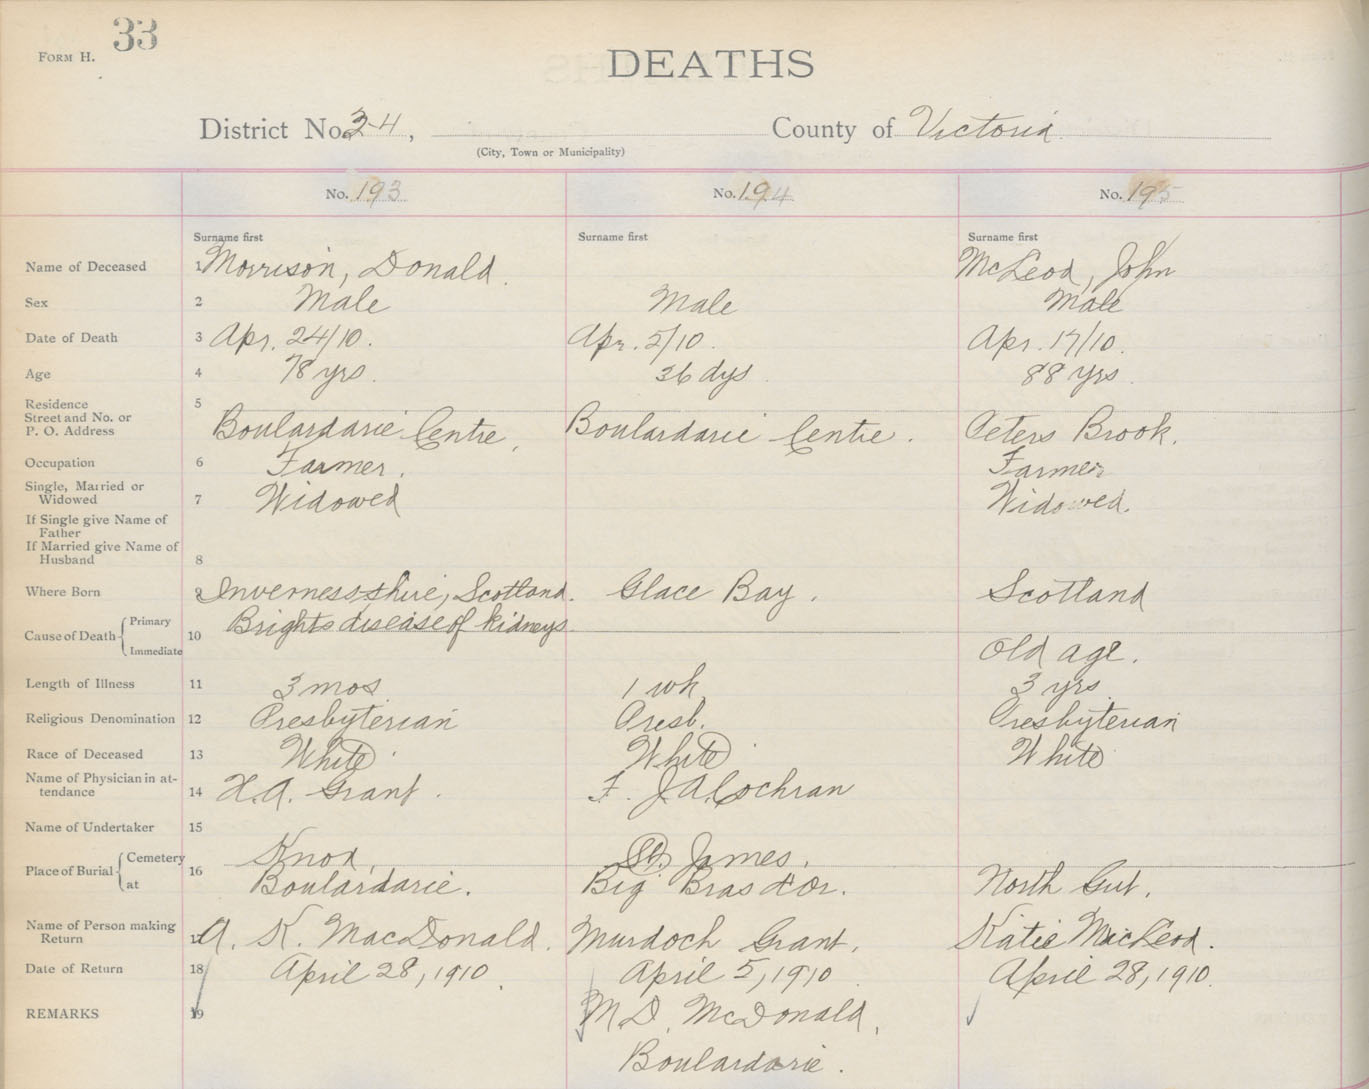 33
FORM H.
DEATHS
District No. 24, County of Victoria
(City, Town or Municipality)
No. 193 No. 194 No. 195
Surname first Surname first Surname first
Name of Deceased 1 Morrison, Donald. McLeod, John
Sex 2 Male Male Male
Date of Death 3 Apr. 24/10. Apr. 5/10. Apr. 17/10.
Age 4 78 yrs. 36 dys 88 yrs
Residence 5
Street and No. or
P. O. Address Boulardarie Centre, Boulardarie Centre. Peters Brook.
Occupation 6 Farmer. Farmer
Single, Married or
Widowed 7 Widowed Widowed.
If Single give Name of
Father
If Married give Name of
Husband 8
Where Born 9 Invernessshire, Scotland. Glace Bay. Scotland
Cause of Death Primary 10 Brights disease of kidneys
Immediate Old age.
Length of Illness 11 3 mos. 1 wk. 3 yrs
Religious Denomination 12 Presbyterian Presb. Presbyterian
Race of Deceased 13 White White White
Name of Physician in at-
tendance 14 H.A. Grant. F. J A. Cochran
Name of Undertaker 15
Place of Burial Cemetery 16 Knox, St. James.
at Boulardarie. Big Bras d'or. North Gut.
Name of Person making
Return 17 A. K. MacDonald. Murdoch Grant. Katie MacLeod.
Date of Return 18 April 28, 1910. April 5, 1910 April 28, 1910.
REMARKS 19 M.D. McDonald,
Boulardarie.